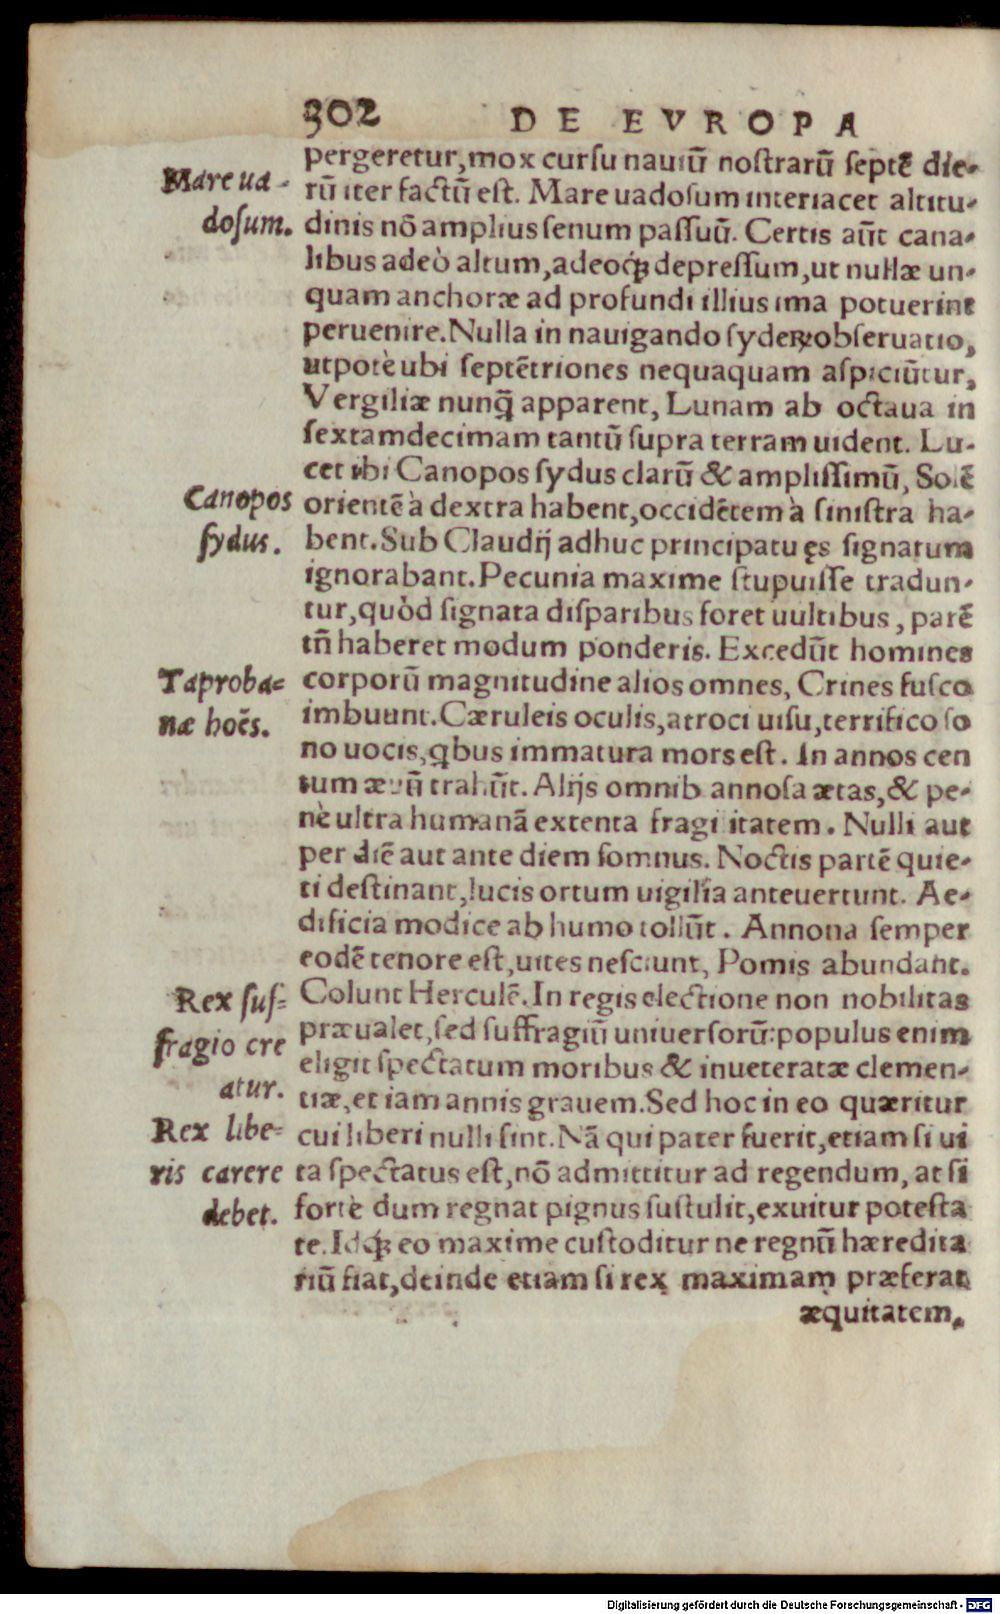 302 DE EVROPA
pergeretur, mox cursu nauiũ nostrarũ septẽ die-
Mare ua-
rũ iter factũ est. Mare uadosum interiacet altitu-
dosum.
dinis nõ amplius senum passuũ. Certis aũt cana-
libus adeò altum, adeoqꝫ depressum, ut nullæ un-
quam anchoræ ad profundi illius ima potuerint
peruenire. Nulla in nauigando syderꝝ obseruatio,
utpotè ubi septẽtriones nequaquam aspiciũtur,
Vergiliæ nunq̃ apparent, Lunam ab octaua in
sextamdecimam tantũ supra terram uident. Lu-
cet ibi Canopos sydus clarũ & amplissimũ, Solẽ
Canopos
orientẽ à dextra habent, occidẽtem à sinistra ha-
sydus.
bent. Sub Claudij adhuc principatu ęs signatum
ignorabant. Pecunia maxime stupuisse tradun-
tur, quòd signata disparibus foret uultibus, parẽ
tñ haberet modum ponderis. Excedũt homines
Taproba=
corporũ magnitudine alios omnes, Crines fusco
næ hoẽs.
imbuunt. Cæruleis oculis, atroci uisu, terrifico so
no uocis, qbus immatura mors est. In annos cen
tum æuũ trahũt. Alijs omnib annosa ætas, & pe-
nè ultra humanã extenta fragilitatem. Nulli aut
per diẽ aut ante diem somnus. Noctis partẽ quie-
ti destinant, lucis ortum uigilia anteuertunt. Ae-
dificia modice ab humo tollũt. Annona semper
eodẽ tenore est, uites nesciunt, Pomis abundant.
Rex suf=
Colunt Herculẽ. In regis electione non nobilitas
fragio cre
præualet, sed suffragiũ uniuersorũ: populus enim
atur.
eligit spectatum moribus & inueteratæ clemen-
tiæ, etiam annis grauem. Sed hoc in eo quæritur
Rex libe=
cui liberi nulli sint. Nã qui pater fuerit, etiam si ui
ris carere
ta spectatus est, nõ admittitur ad regendum, at si
debet.
fortè dum regnat pignus sustulit, exuitur potesta
te. Idqꝫ eo maxime custoditur ne regnũ hæredita
riũ fiat, deinde etiam si rex maximam præferat
æquitatem,
Digitalisierung gefördert durch die Deutsche Forschungsgemeinschaft - DFG